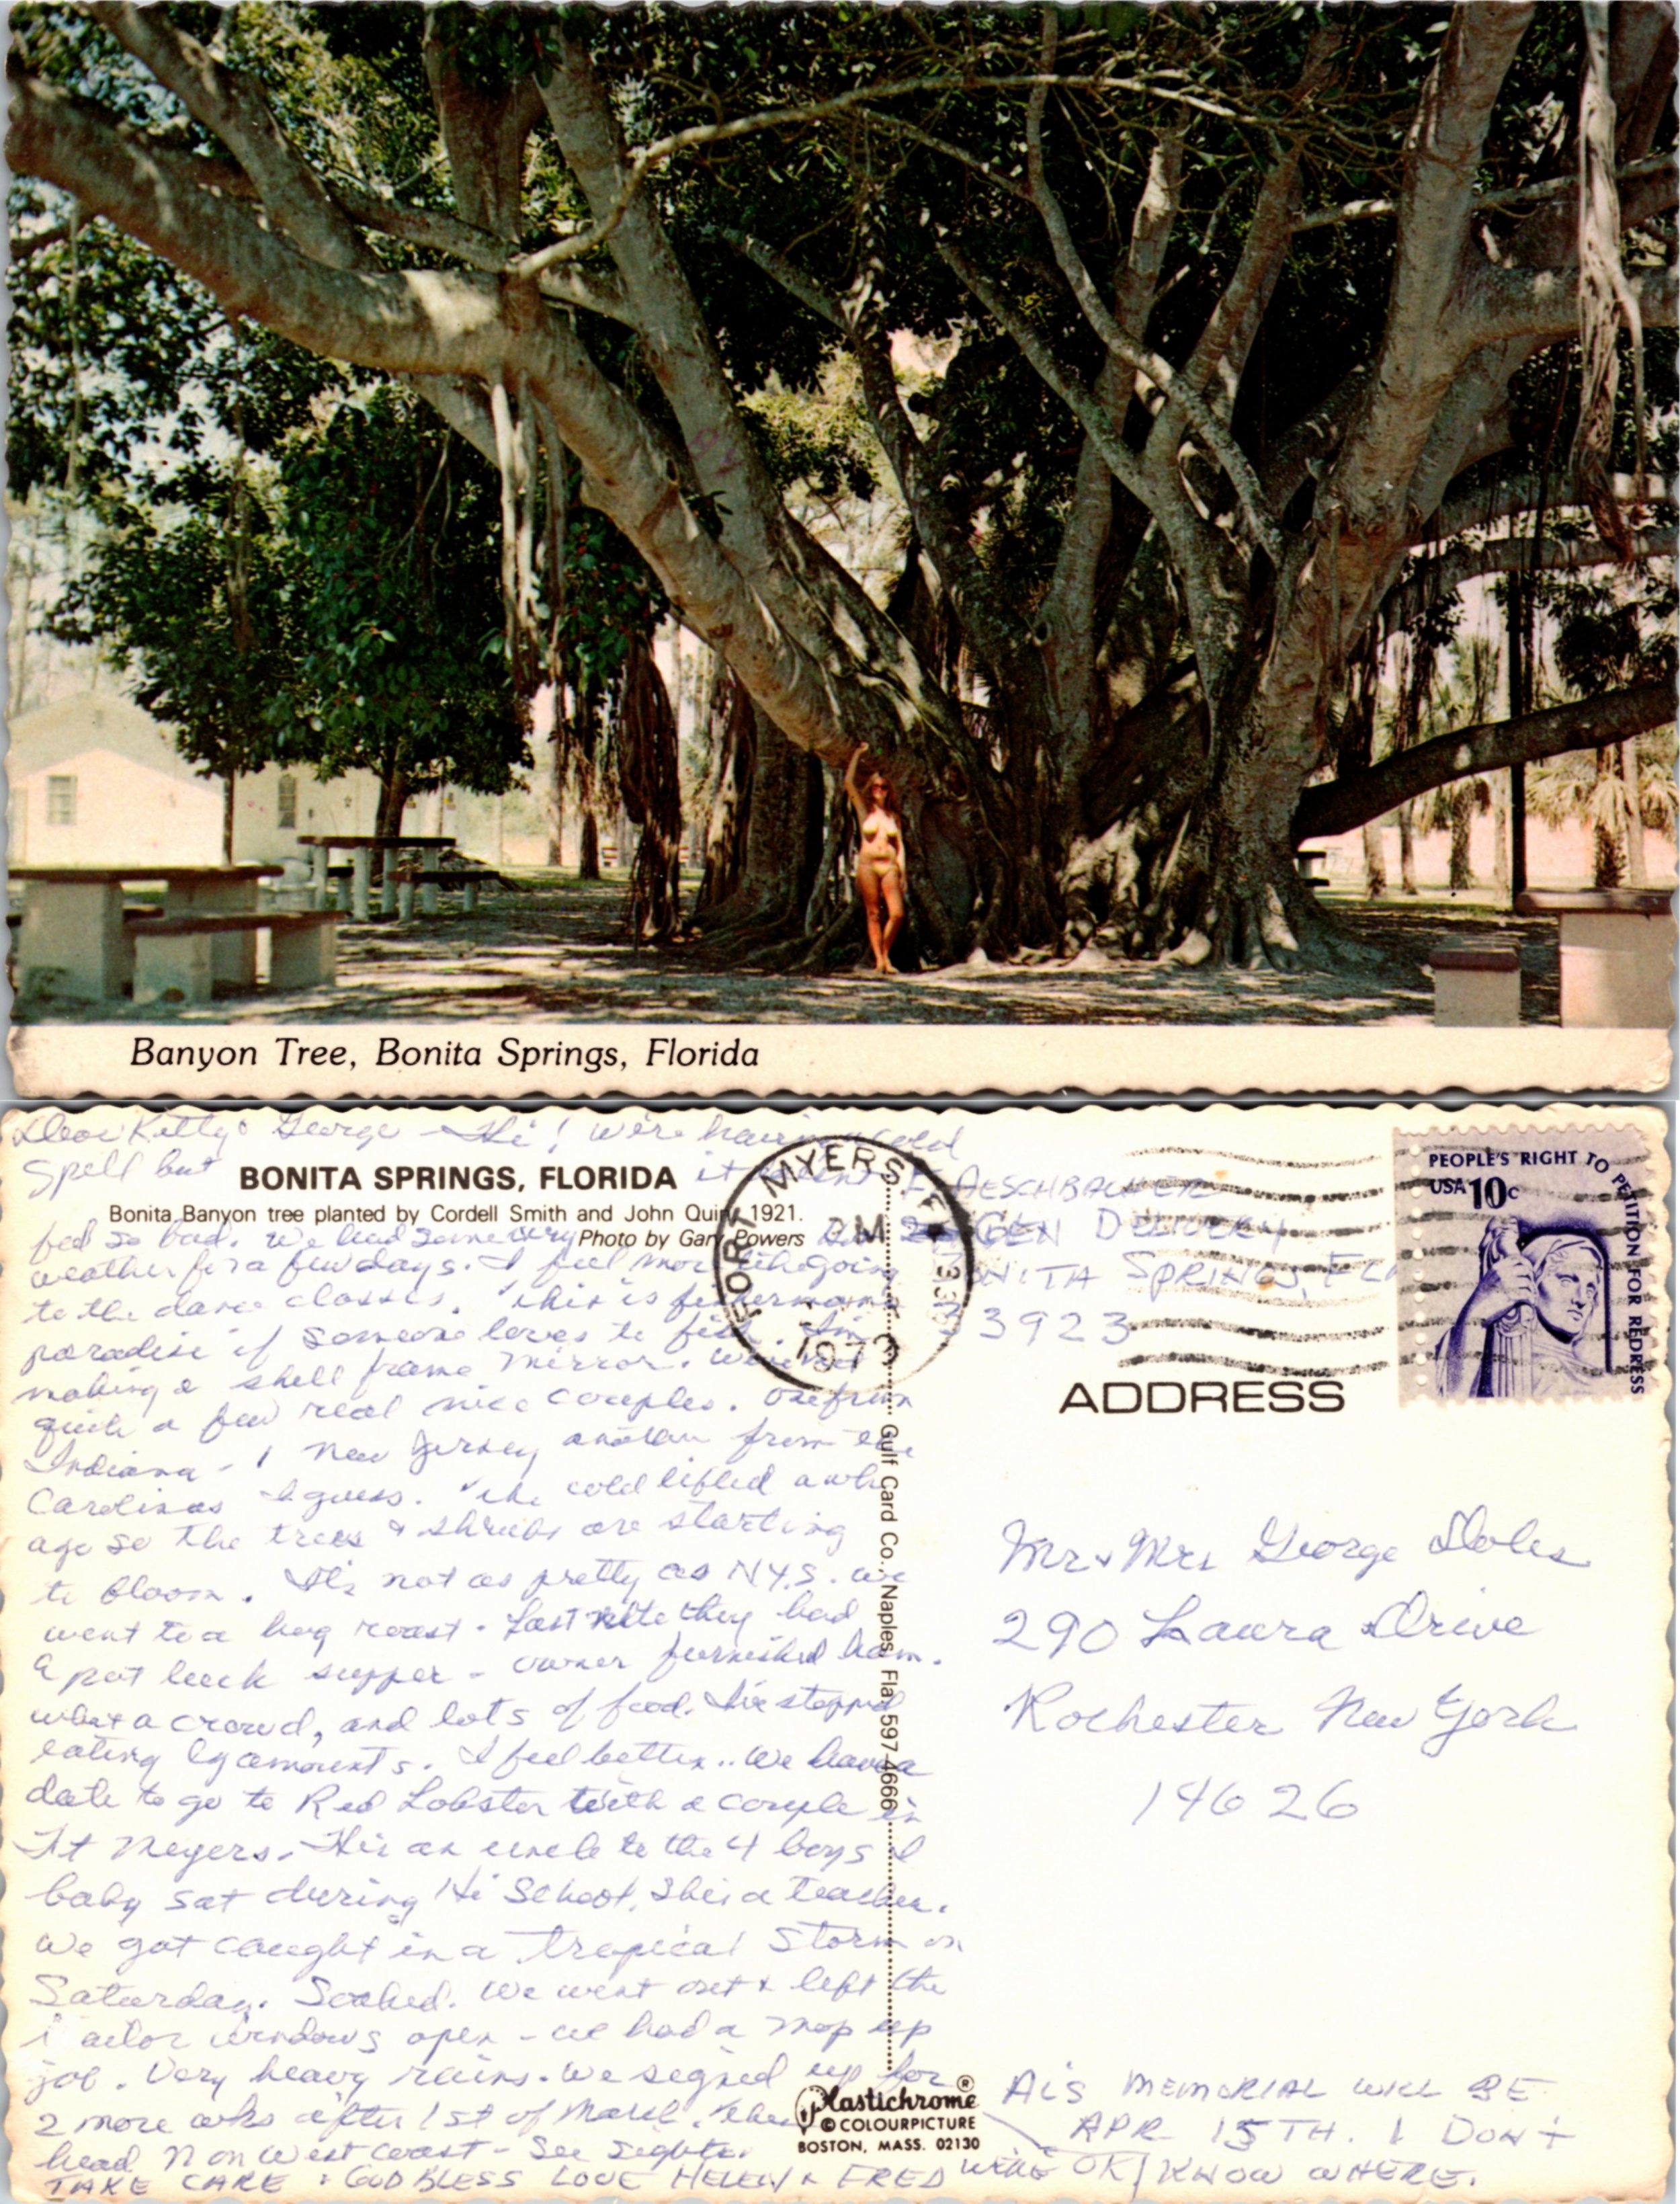 Banyon Tree, Bonita Springs, Florida
Dear Kitty & George - Hi! We're having cold
spell but
BONITA SPRINGS, FLORIDA
it
Bonita Banyon tree planted by Cordell Smith and John Quinn 1921.
Photo by Gary Powers
feel so bad. We had some very
weather for a few days. I feel more like going
to the dance classes. This is fisherman's
paradise if someone loves to fish. I'm
making a shell frame mirror. We've met
quite a few real nice couples. One from
Indiana - 1 New Jersey another from the
Carolinas I guess. The cold lifted awhile
ago so the trees & shrubs are starting
to bloom. It's not as pretty as N.Y.S. We
went to a hog roast. Last nite they had
a pot luck supper - owner furnished ham.
What a crowd, and lots of food. I've stopped
eating lg amounts. I feel better.. We have a
date to go to Red Lobster with a couple in
Ft Meyers. He's an uncle to the 4 boys I
baby sat during Hi School. She's a teacher.
We got caught in a tropical storm on
Saturday. Soaked. We went out & left the
windows open - we had a mop up
job. Very heavy rains. We signed up for
2 more wks after 1st of March. Then
head N on west coast - See sights.
TAKE CARE & GOD BLESS LOVE HELEN & FRED
WE'RE OK
FORT MYERS FL
PM
197
339
F AESCHBACHER
GEN DELIVERY
BONITA SPRINGS, FLA
33923
PEOPLE'S RIGHT TO PETITION FOR REDRESS
USA 10c
ADDRESS
Mr & Mrs George Doles
290 Laura Drive
Rochester New York
14626
Gulf Card Co., Naples, Fla. 597-4666
Plastichrome ®
© COLOURPICTURE
BOSTON, MASS. 02130
AL'S MEMORIAL WILL BE
APR 15TH. I DON'T
KNOW WHERE.